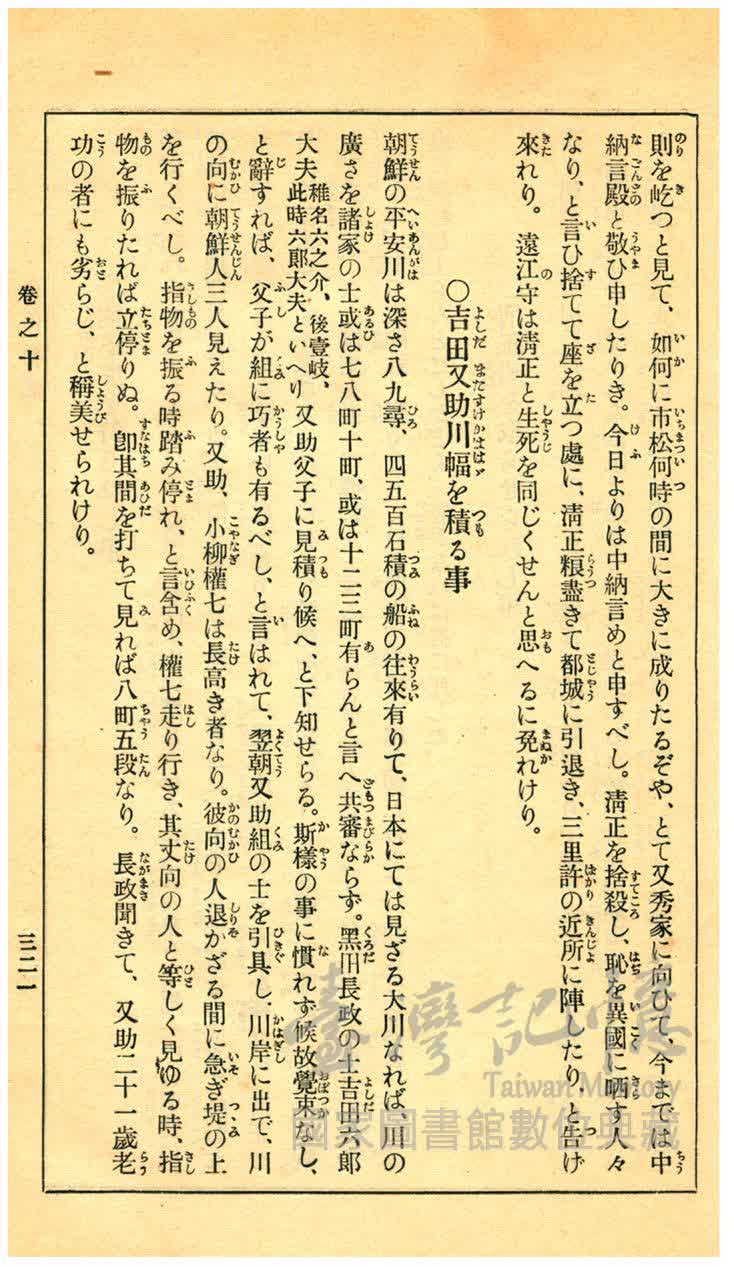 則を屹つと見て、如何に市松何時の間に大きに成りたるぞや、とて又秀家に向ひて、今までは中
納言殿と敬ひ申したりき。今日よりは中納言めと申すべし。淸正を捨殺し、恥を異國に晒す人々
なり、と言ひ捨てて座を立つ處に、淸正粮盡きて都城に引退き、三里許の近所に陣したり、と告げ
來れり。遠江守は淸正と生死を同じくせんと思へるに免れけり。
〇吉田又助川幅を積る事
朝鮮の平安川は深さ八九尋、四五百石積の船の往來有りて、日本にては見ざる大川なれば、川の
廣さを諸家の士或は七八町十町、或は十二三町有らんと言へ共審ならず。黑田長政の士吉田六郞
大夫稚名六之介、後壹岐、此時六郞大夫といへり又助父子に見積り候へ、と下知せらる。斯樣の事に慣れず候故覺束なし、
と辭すれば、父子が組に巧者も有るべし、と言はれて、翌朝又助組の士を引具し、川岸に出で、川
の向に朝鮮人三人見えたり。又助、小柳權七は長高き者なり。彼向の人退かざる間に急ぎ堤の上
を行くべし。指物を振る時踏み停れ、と言含め、權七走り行き、其丈向の人と等しく見ゆる時、指
物を振りたれば立停りぬ。卽其間を打ちて見れば八町五段なり。長政聞きて、又助二十一歲老
功の者にも劣らじ、と稱美せられけり。
卷之十
三二一
臺灣記憶
Taiwan Memory
國家圖書館數位典藏